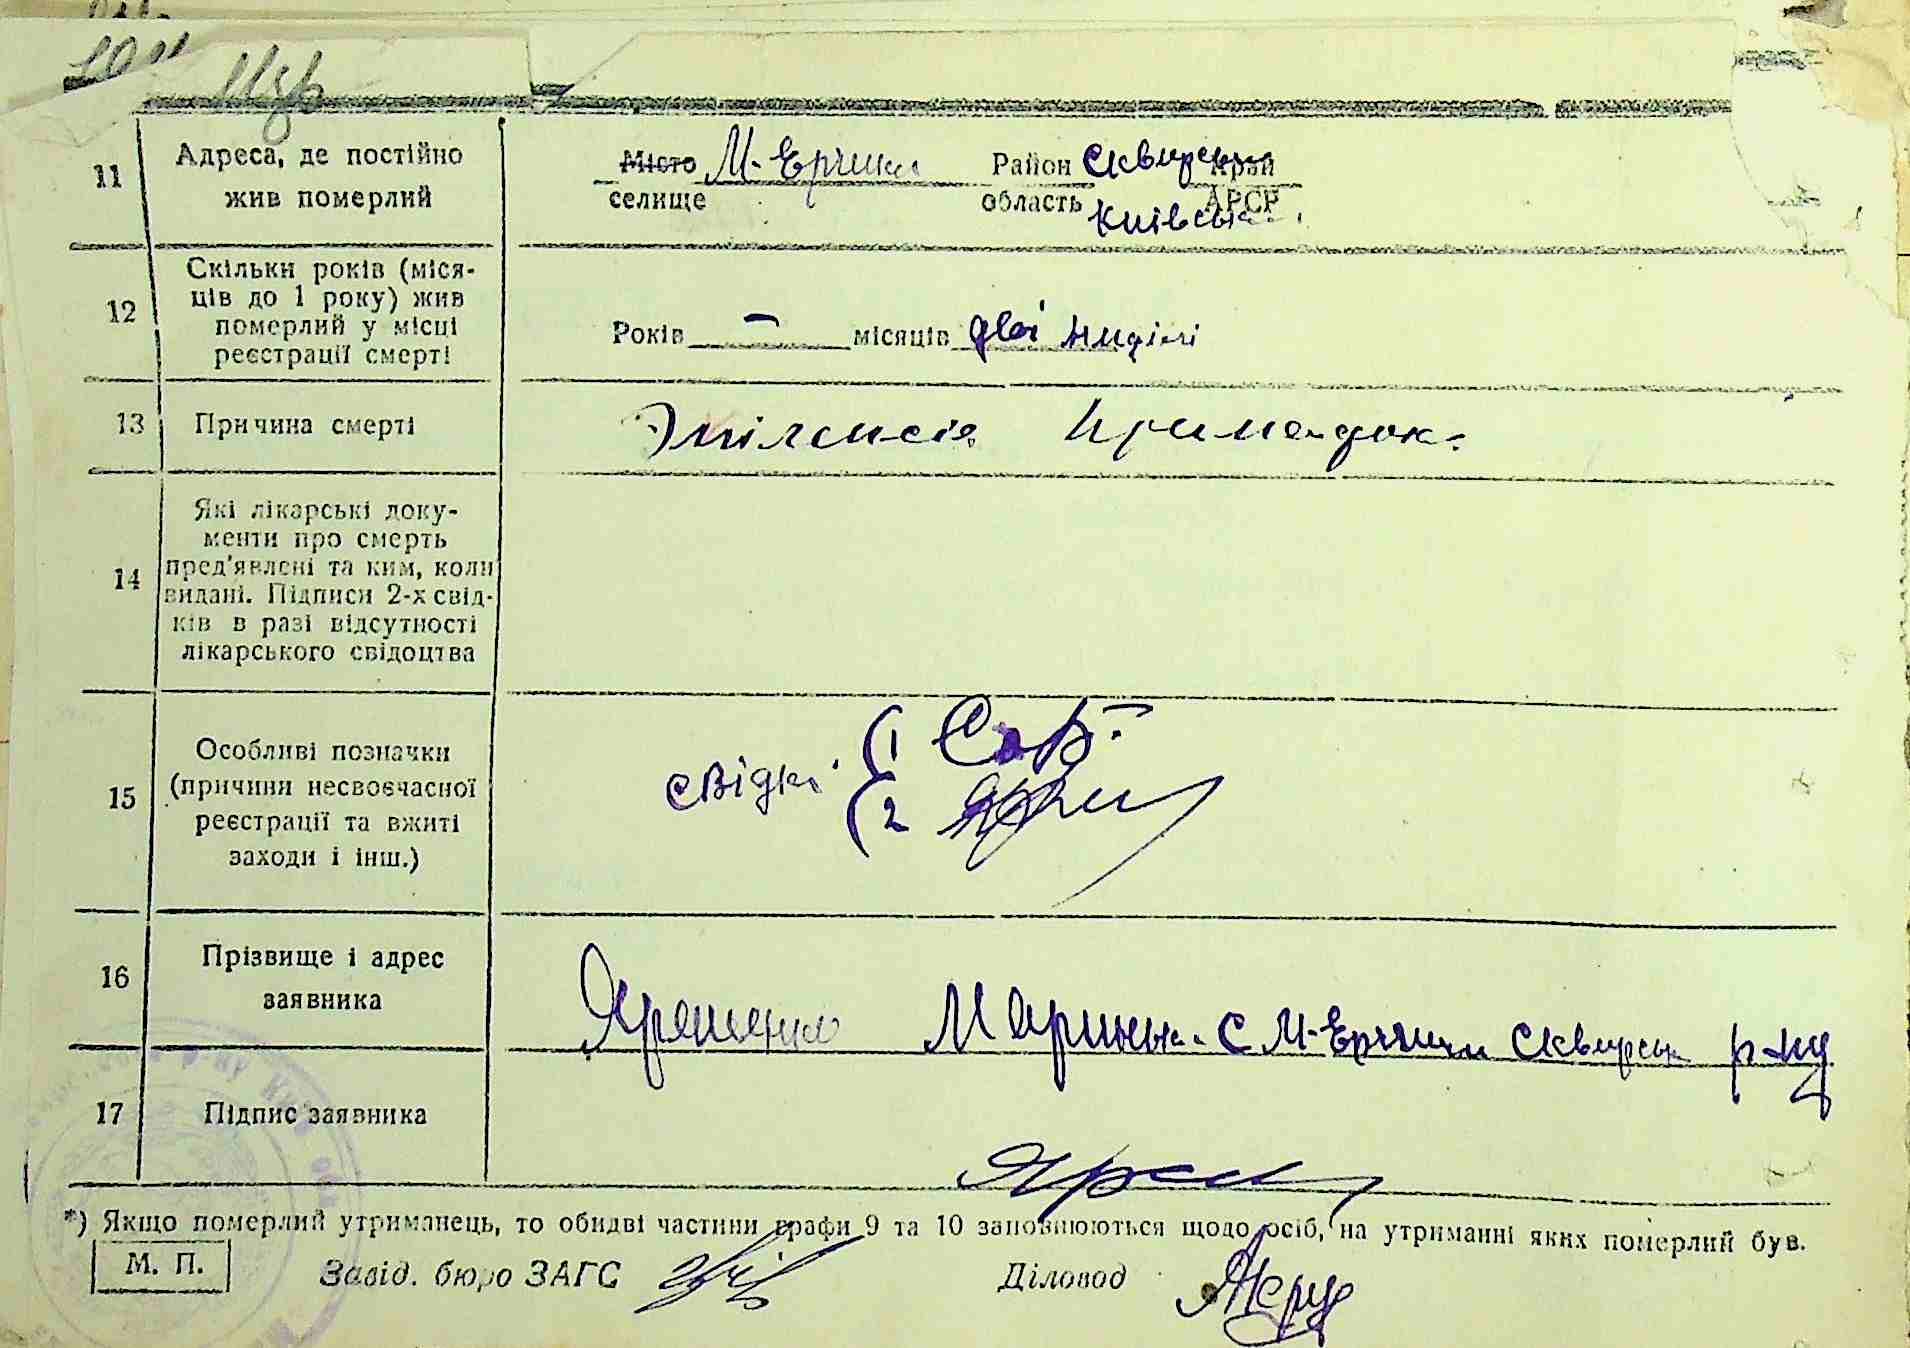 11
Адреса, де постійно
жив померлий
Місто М-Єрчики Район Сквирськ Край
селище область Київська АРСР
12
Скільки років (міся-
ців до 1 року) жив
померлий у місці
реєстрації смерті
Років — місяців дві ниділі
13
Причина смерті
Эпілепсія
14
Які лікарські доку-
менти про смерть
пред'явлені та ким, коли
видані. Підписи 2-х свід-
ків в разі відсутності
лікарського свідоцтва
15
Особливі позначки
(причини несвоєчасної
реєстрації та вжиті
заходи і інш.)
свідки (1
(2
16
Прізвище і адрес
заявника
Мариння с М-Єрчики Сквирськ р-ну
17
Підпис заявника
*) Якщо померлий утриманець, то обидві частини графи 9 та 10 заповнюються щодо осіб, на утриманні яких померлий був.
М. П.
Завід. бюро ЗАГС
Діловод